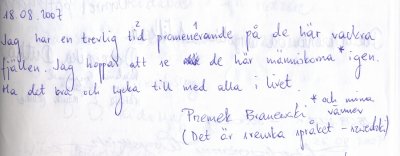 18.08.2007
Jag har en trevlig tid² promenerande¹ på de här vackra
fjällen. Jag hoppas att se de här människorna * igen.
Ha det bra och lycka till med alla i livet.
* och mina
vänner
Przemek
(Det är svenska språket – szwedzki)